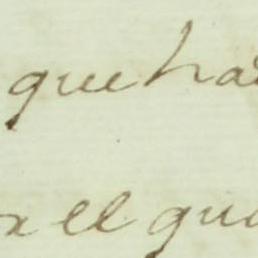 que ha
el qu